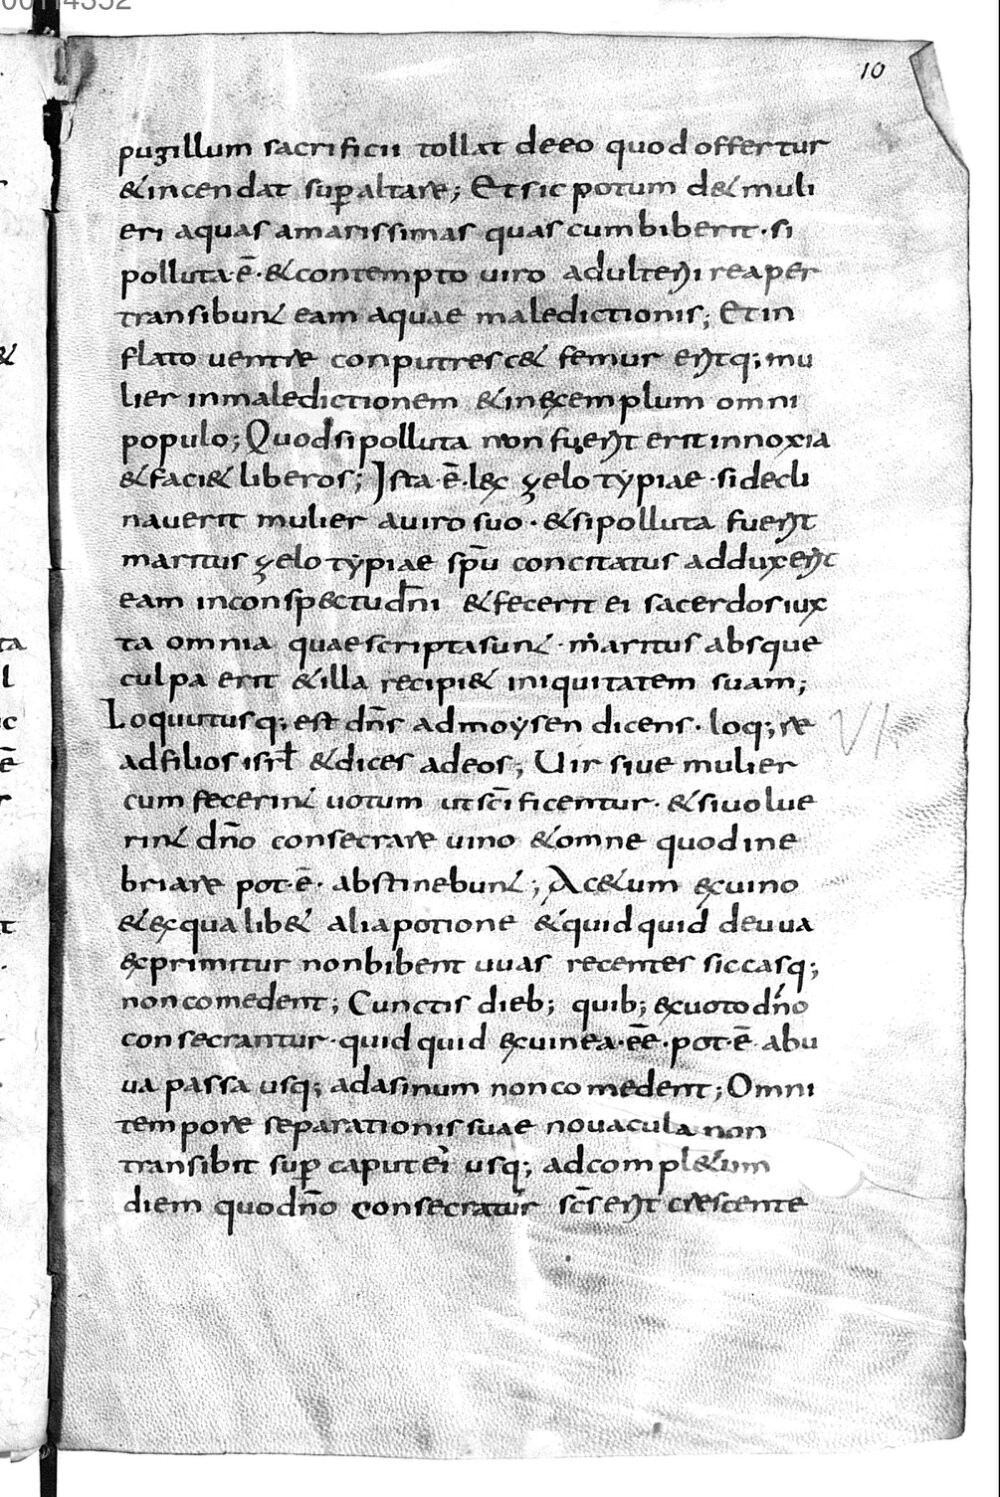 10
pugillum sacrificii tollat de eo quod offertur
& incendat sup altare; Et sic potum d& muli
eri aquas amarissimas quas cum biberit · si
polluta · ē · & contempto uiro adulterii rea per
transibunt eam aquae maledictionis; Et in
flato uentre conputresc& femur eritq; mu
lier in maledictionem & in exemplum omni
populo; Quod si polluta non fuerit erit innoxia
& faci& liberos; Ista · ē · lex zelotypiae · si decli
nauerit mulier a uiro suo · & si polluta fuerit
maritus zelotypiae spū concitatus adduxerit
eam in conspectu dn̄i & fecerit ei sacerdos iux
ta omnia quae scripta sunt · maritus absque
culpa erit & illa recipi& iniquitatem suam;
Loquutusq; est dn̄s ad moysen dicens · loq;re
ad filios isrł & dices ad eos; Uir siue mulier
cum fecerint uotum ut sc̄ificentur · & si uolue
rint dn̄o consecrare uino & omne quod ine
briare pot · ē · abstinebunt; Ac&um ex uino
& ex qualib& alia potione & quidquid de uua
exprimitur non bibent uuas recentes siccasq;
non comedent; Cunctis dieb; quib; ex uoto dn̄o
consecrantur · quidquid ex uinea · ēē · pot · ē ab u
ua passa usq; ad asinum non comedent; Omni
tempore separationis suae nouacula non
transibit sup caput ei usq; ad compl&um
diem quo dn̄o consecratur sc̄s erit crescente
VI